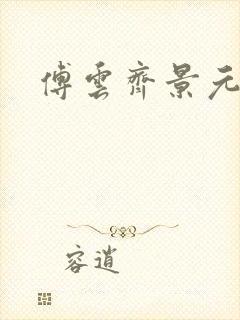 傅雲齊景元
容逍